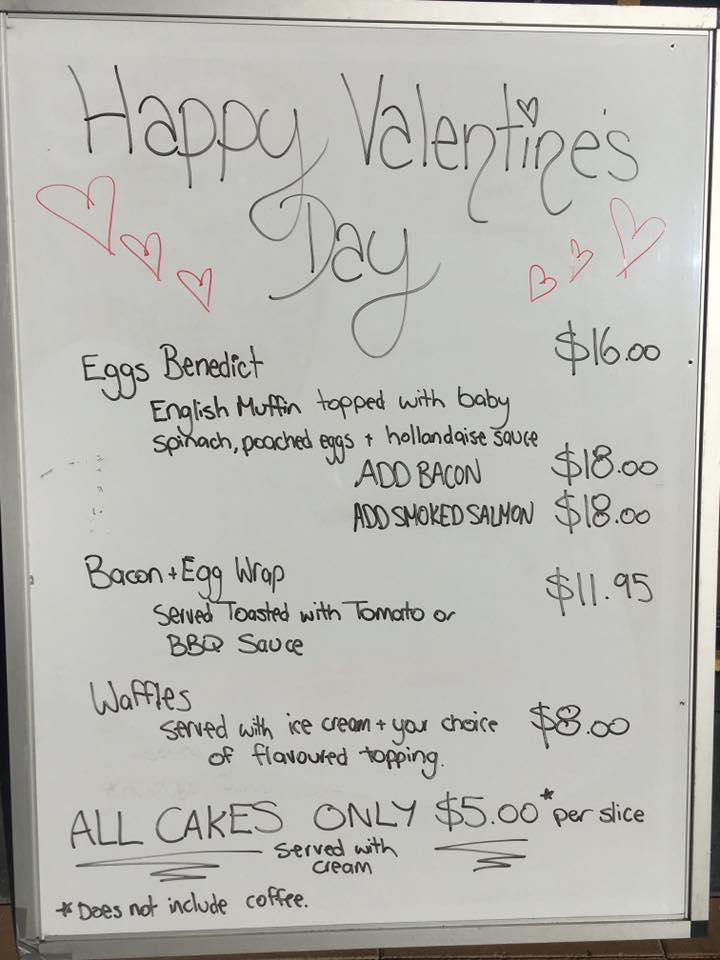 Happy Valentine's
Day
Eggs Benedict $16.00
English Muffin topped with baby
spinach, poached eggs + hollandaise sauce
ADD BACON $18.00
ADD SMOKED SALMON $18.00
Bacon + Egg Wrap $11.95
Served Toasted with Tomato or
BBQ Sauce
Waffles
served with ice cream + your choice $8.00
of flavoured topping.
ALL CAKES ONLY $5.00* per slice
served with
cream
* Does not include coffee.